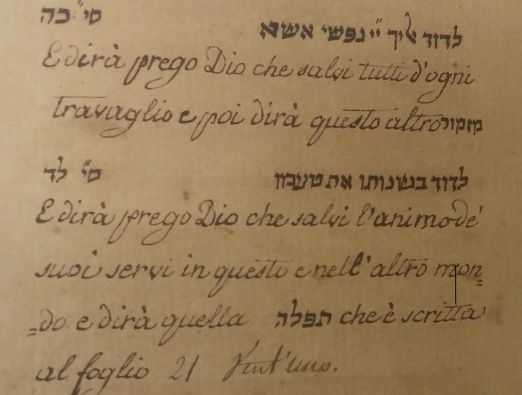 לדוד אליך יי נפשי אשא סי' כה
E dirà prego Dio che salvi tutti d'ogni
travaglio e poi dirà questo altro מזמור
לדוד בשנותו את טעמו סי' לד
E dirà prego Dio che salvi l'anima de'
suoi servi in questo e nell'altro mon=
=do e dirà quella תפלה che è scritta
al foglio 21 Vint'uno.